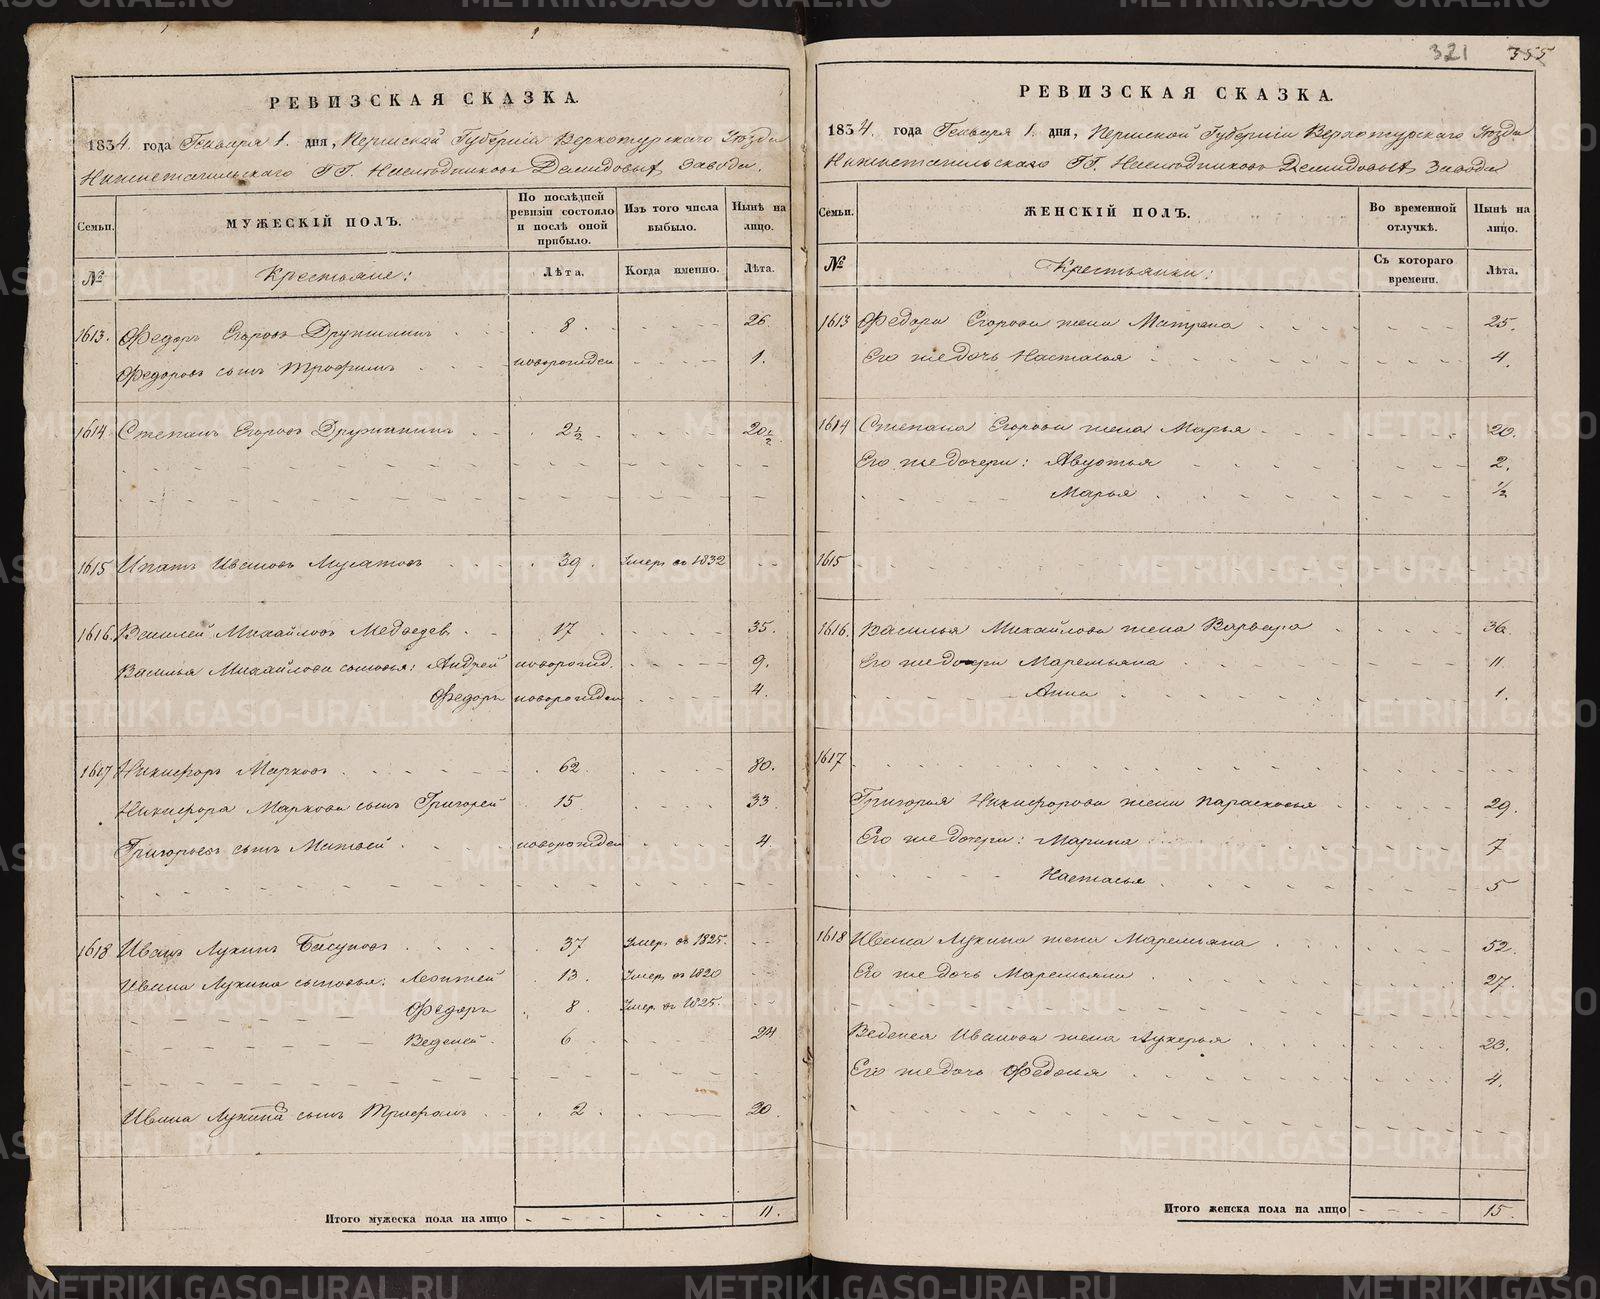 РЕВИЗСКАЯ СКАЗКА.
1834. года Генваря 1. дня, Пермской Губерніи Верхотурскаго Уезда
Нижнетагильскаго ГГ. Наследниковъ Демидовыхъ завода.
Семьи.
МУЖЕСКІЙ ПОЛЪ.
По послѣдней ревизіи состояло и послѣ оной прибыло.
Изъ того числа выбыло.
Нынѣ на лицо.
№ Крестьяне: Лѣта. Когда именно. Лѣта.
1613. Федоръ Егоровъ Дружининъ 8. 26.
Федоровъ сынъ Трофимъ новорожден 1.
1614. Степанъ Егоровъ Дружининъ 2½ 20½
1615 Ипатъ Ивановъ Мусатовъ 39. Умеръ въ 1832
1616. Василей Михайловъ Медведев 17 35.
Василья Михайлова сыновья: Андрей новорожд. 9.
Федоръ новорожден 4.
1617 Никифоръ Марковъ 62. 80.
Никифора Маркова сынъ Григорей 15 33
Григорьевъ сынъ Матвей новорожден 4.
1618 Иванъ Лукинъ Басуновъ 37 Умер. въ 1825.
Ивана Лукина сыновья: Леонтей 13. Умер. въ 1820
Федоръ 8. Умер. въ 1825.
Веденей. 6 24
Ивана Лукина сынъ Трифонъ 2. 20.
Итого мужеска пола на лицо 11.
321 355
РЕВИЗСКАЯ СКАЗКА.
1834. года Генваря 1. дня, Пермской Губерніи Верхотурскаго Уезда
Нижнетагильскаго ГГ. Наследниковъ Демидовыхъ завода
Семьи.
ЖЕНСКІЙ ПОЛЪ.
Во временной отлучкѣ.
Нынѣ на лицо.
№ Крестьянки: Съ котораго времени. Лѣта.
1613 Федора Егорова жена Матрена 25.
Его же дочь Настасья 4.
1614 Степана Егорова жена Марья 20.
Его же дочери: Авдотья 2.
Марья ½
1615
1616. Василья Михайлова жена Варвара 36.
Его же дочери Маремьяна 11.
Анна 1.
1617
Григорья Никифорова жена Парасковья 29.
Его же дочери: Марина 7
Настасья 5
1618 Ивана Лукина жена Маремьяна 52.
Его же дочь Маремьяна 27.
Веденея Иванова жена Лукерья 23.
Его же дочь Федосья 4.
Итого женска пола на лицо 15.
METRIKI.GASO-URAL.RU